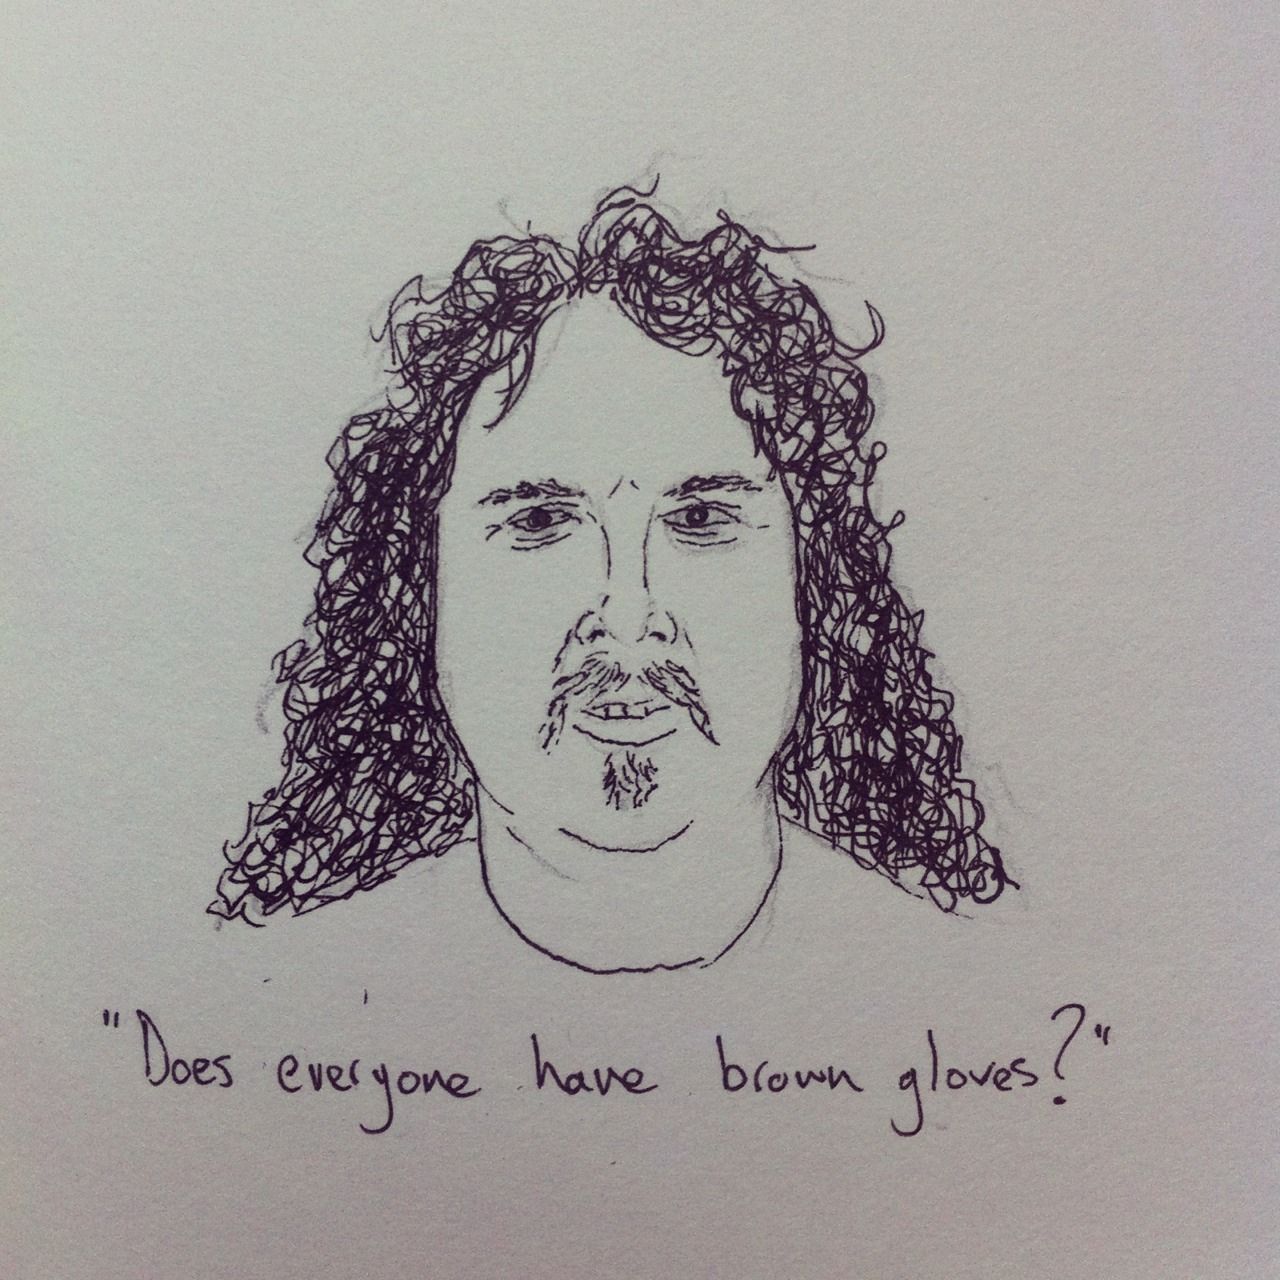 "Does everyone have brown gloves?"